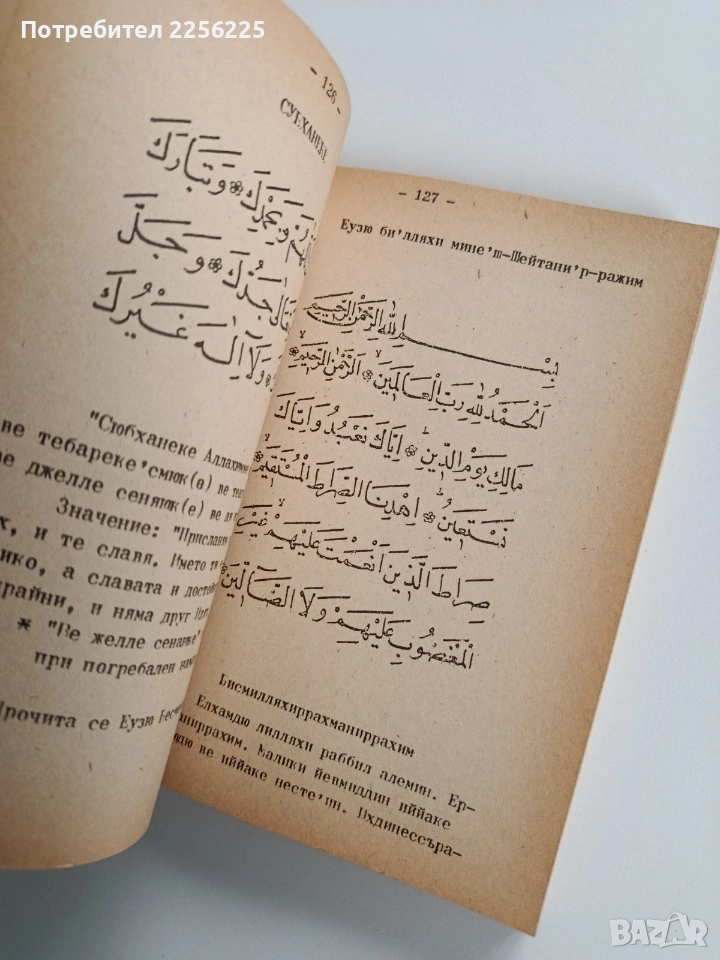 Потребител 2256225
- 126 -
СУБХАНЕКЕ
وَتَبَارَكَ
وَبِحَمْدِكَ
وَجَلَّ
وَلَا إِلٰهَ غَيْرُكَ
"Сюбханеке
ве тебареке'смюк(в) ве
ве джелле сенаюк(е) ве
Значение:
х, и те славя. Името
ико, а славата и
крайни, и няма друг
* "Ве желле сенаюке"
при погребален
Прочита се Еузю
- 127 -
Еузю би'лляхи мине'ш-Шейтани'р-ражим
بِسْمِ اللهِ الرَّحْمٰنِ الرَّحِيمِ
اَلْحَمْدُ لِلّٰهِ رَبِّ الْعَالَمِينَ اَلرَّحْمٰنِ الرَّحِيمِ
مَالِكِ يَوْمِ الدِّينِ اِيَّاكَ نَعْبُدُ وَاِيَّاكَ
نَسْتَعِينُ اِهْدِنَا الصِّرَاطَ الْمُسْتَقِيمَ
صِرَاطَ الَّذِينَ اَنْعَمْتَ عَلَيْهِمْ غَيْرِ
الْمَغْضُوبِ عَلَيْهِمْ وَلَا الضَّالِّينَ
Бисмилляхиррахманиррахим
Елхамдю лилляхи раббил алемин. Ер-
маниррахим. Малики йевмиддин иййаке
ве иййаке несте'ин. Ихдинессъра-
BAZAR